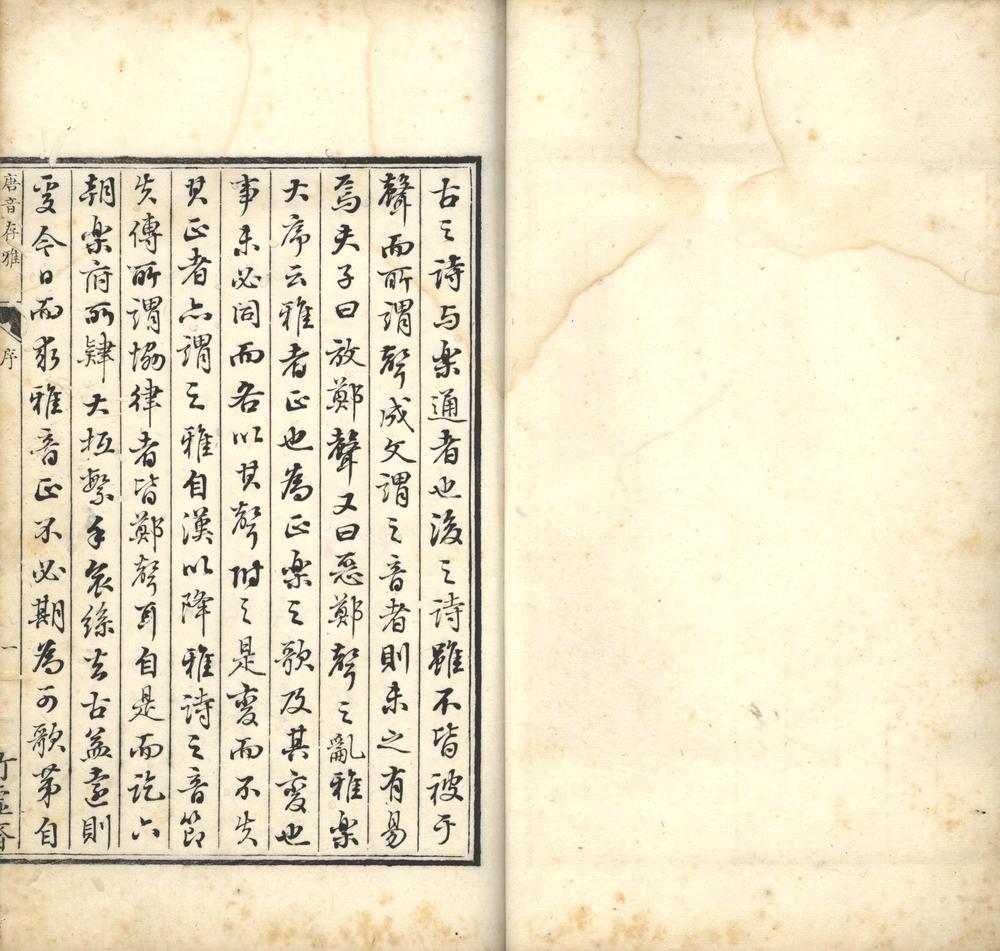 古之詩与樂通者也後之詩雖不皆被于
聲而所謂聲成文謂之音者則未之有易
焉夫子曰放鄭聲又曰惡鄭聲之亂雅樂
大序云雅者正也為正樂之歌及其變也
事未必同而各以其聲附之是變而不失
其正者亦謂之雅自漢以降雅詩之音節
失傳所謂協律者皆鄭聲耳自是而訖六
朝樂府所肄大抵繁手哀絲去古益遠則
居今日而求雅音正不必期為可歌第自
唐音存雅
序
一